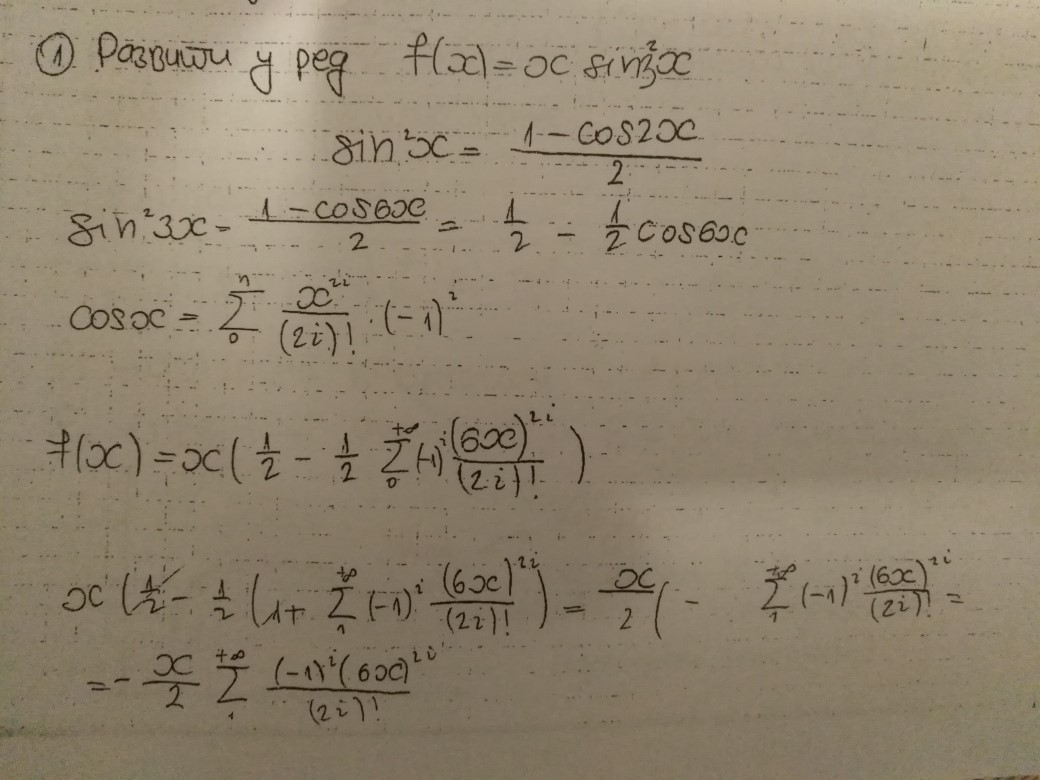 ① Развити у ред f(x) = x sin²3x
sin²x = (1 - cos2x)/2
sin²3x = (1 - cos6x)/2 = 1/2 - 1/2 cos6x
cosx = ∑₀ⁿ x²ⁱ/(2i)! · (-1)ⁱ
f(x) = x(1/2 - 1/2 ∑₀^{+∞} (-1)ⁱ (6x)²ⁱ/(2i)!)
x(1/2 - 1/2 (1 + ∑₁^{+∞} (-1)ⁱ (6x)²ⁱ/(2i)!) = x/2 ( - ∑₁^{+∞} (-1)ⁱ (6x)²ⁱ/(2i)! =
= - x/2 ∑₁^{+∞} (-1)ⁱ(6x)²ⁱ/(2i)!